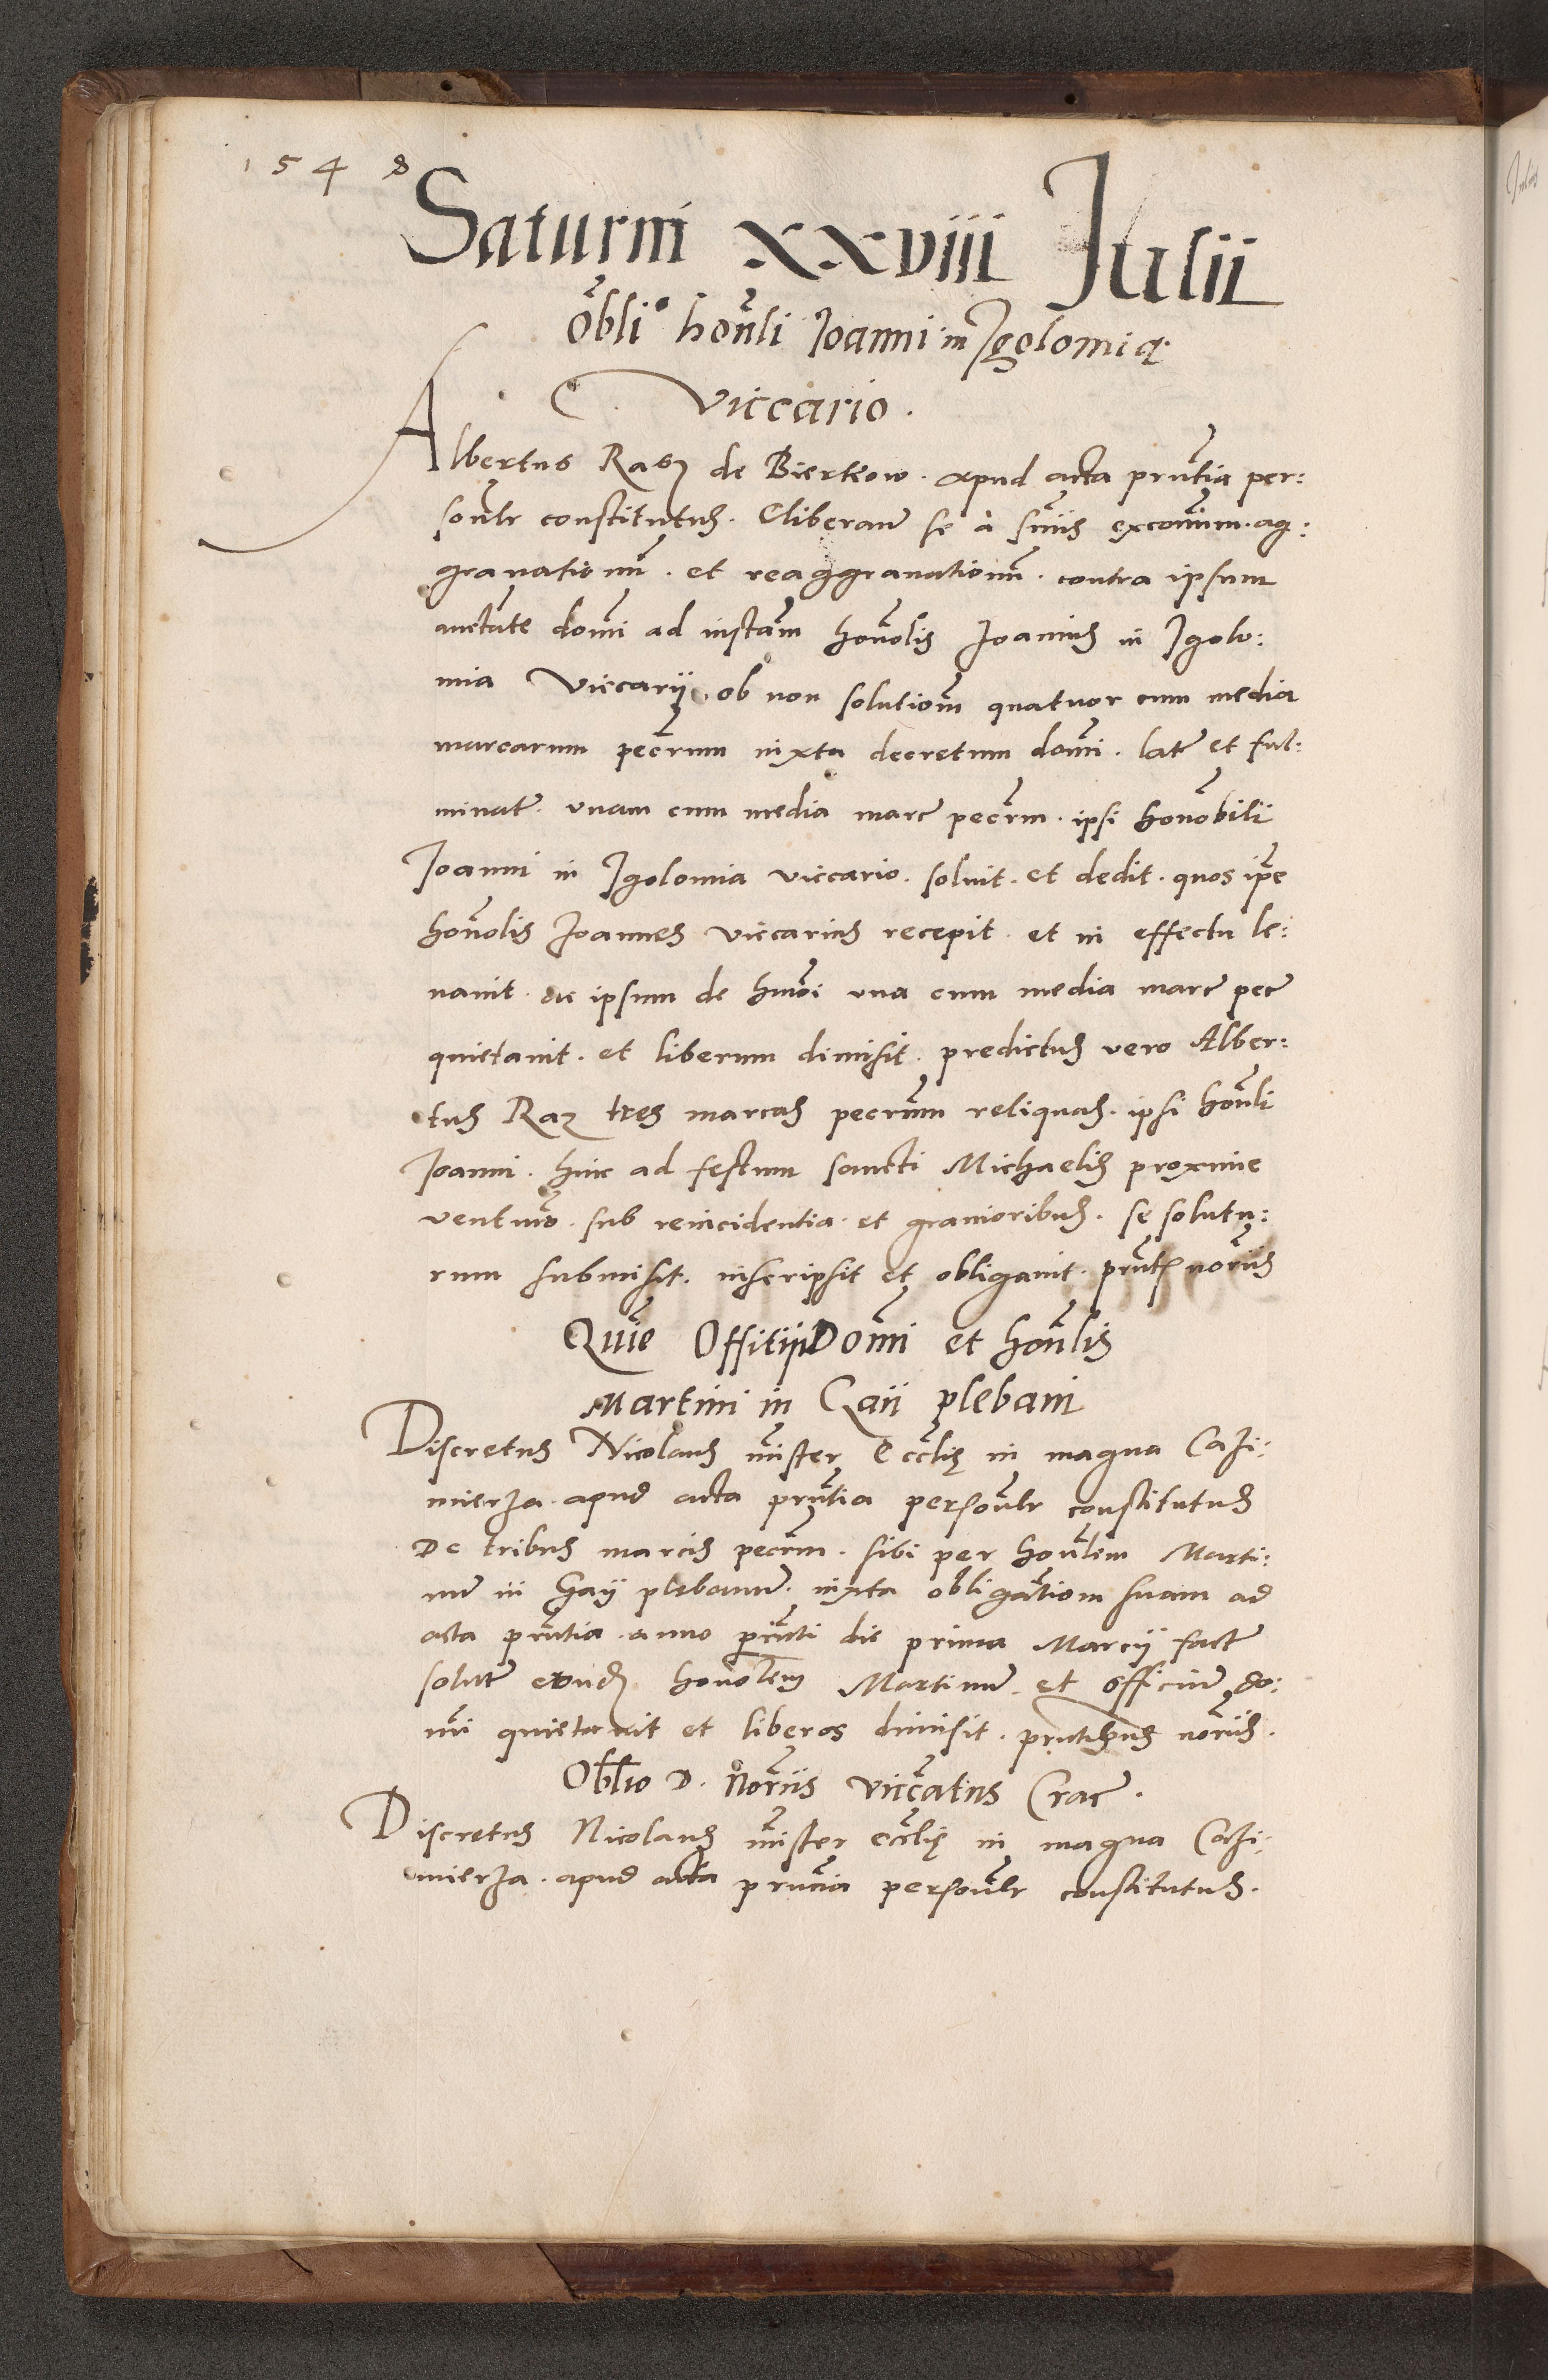 1548
Saturni xxviii Julii
Obli° honli Joanni in Jgolomia
viccario.
Albertus Rasz de Bierkow. apud acta prntia per:
sonlr constitutus. Cliberans se à sniis excomm. ag:
grauationm. et reaggrauationm. contra ipsum
auctate domi ad instam honolis Joannis in Jgolo:
mia Viccarij ob non solutiom quatuor cum media
marcarum pecrum iuxta decretum domi. late et ful:
minate. vnam cum media marc pecrm. ipsi honobili
Joanni in Jgolomia viccario. soluit. et dedit. quos ipse
honolis Joannes viccarius recepit. et in effectu le:
uauit. ac ipsum de hmoi vna cum media marc pec
quietauit. et liberum dimisit. predictus vero Alber:
tus Raz tres marcas pecrum reliquas. ipsi honli
Joanni. hinc ad festum sancti Michaelis proxime
venturo. sub reincidentia. et grauioribus. se solutu:
rum submisit. inscripsit et obligauit. prntz noriis
Quie Offitii Domi et honlis
Martini in Gaii plebani
Discretus Nicolaus mister Ecclie in magna Cazi:
mierza. apud acta prntia personlr constitutus
De tribus marcis pecrm. sibi per honlem Marti:
num in Gaij plebanum. iuxta obligationm suam ad
acta prntia. anno prnti die prima Marcij facte
solut eundz honolem Martinum et officium do:
mi quietauit et liberos dimisit. prntibus noriis.
Oblio D. noriis viccatus Crac.
Discretus Nicolaus mister ecclie in magna Cazi:
mierza. apud acta prncia personlr constitutus.